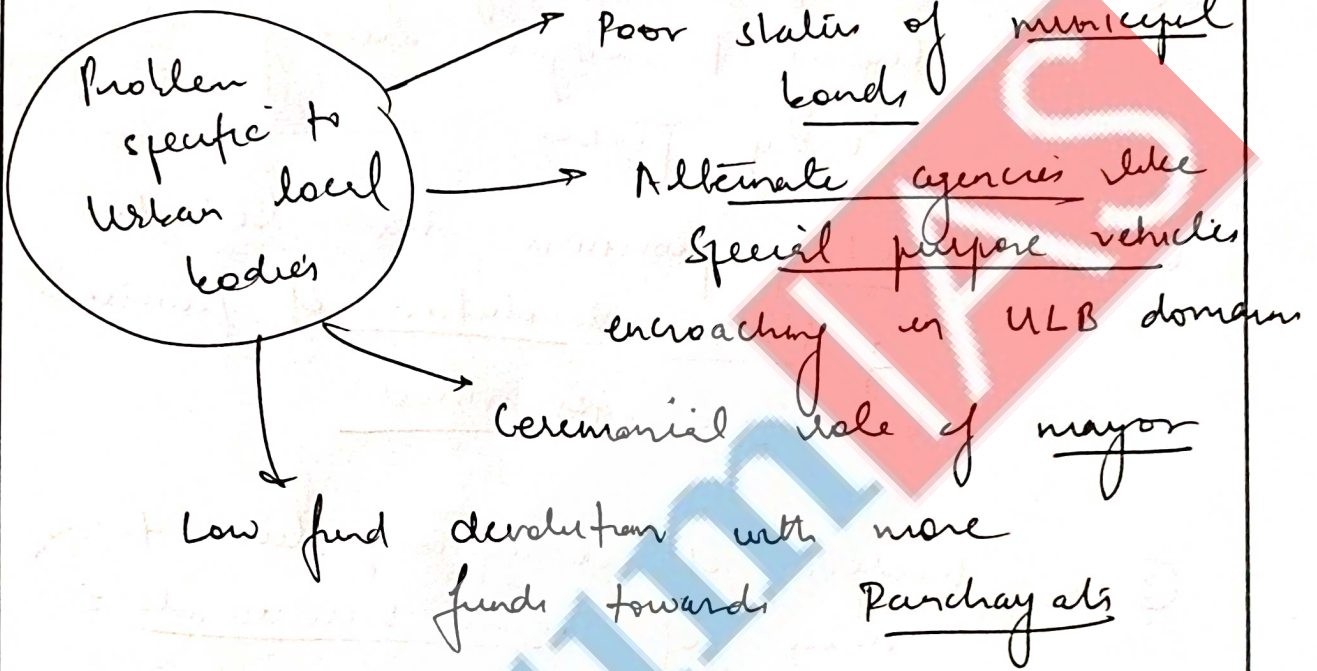 Problem
specific to
Urban local
bodies
Poor status of municipal
bonds
Alternate agencies like
Special purpose vehicles
encroaching in ULB domains
Ceremonial role of mayor
Low fund devolution with more
funds towards Panchayats
um IAS